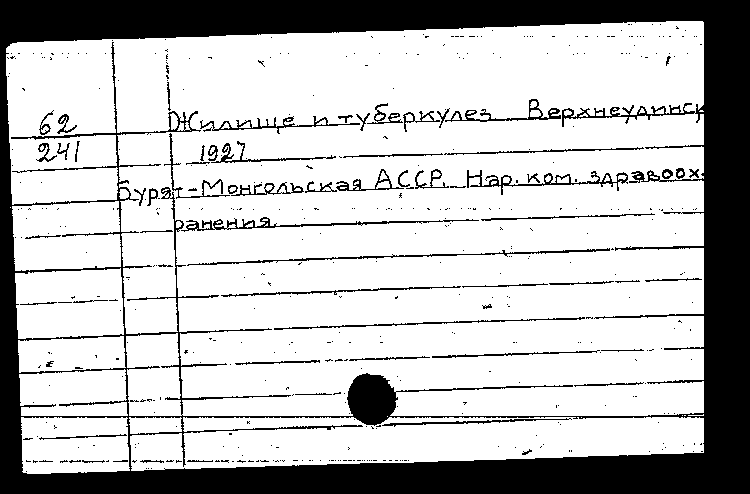 62 Жилище и туберкулез Верхнеудинск
241 1927
Бурят-Монгольская АССР. Нар. ком. здравоох-
ранения